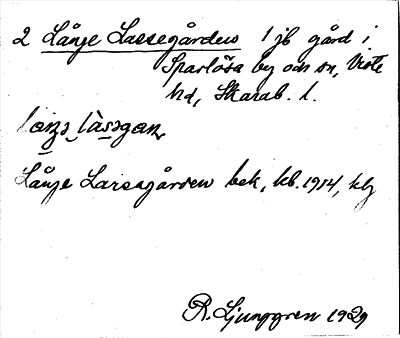 2 Långe Lassegården 1 jb gård i
Sparlösa by och sn, Viste
hd, Skarab. l.
Långe Larsagården bek, kb. 1914, klj
R. Ljunggren 1929